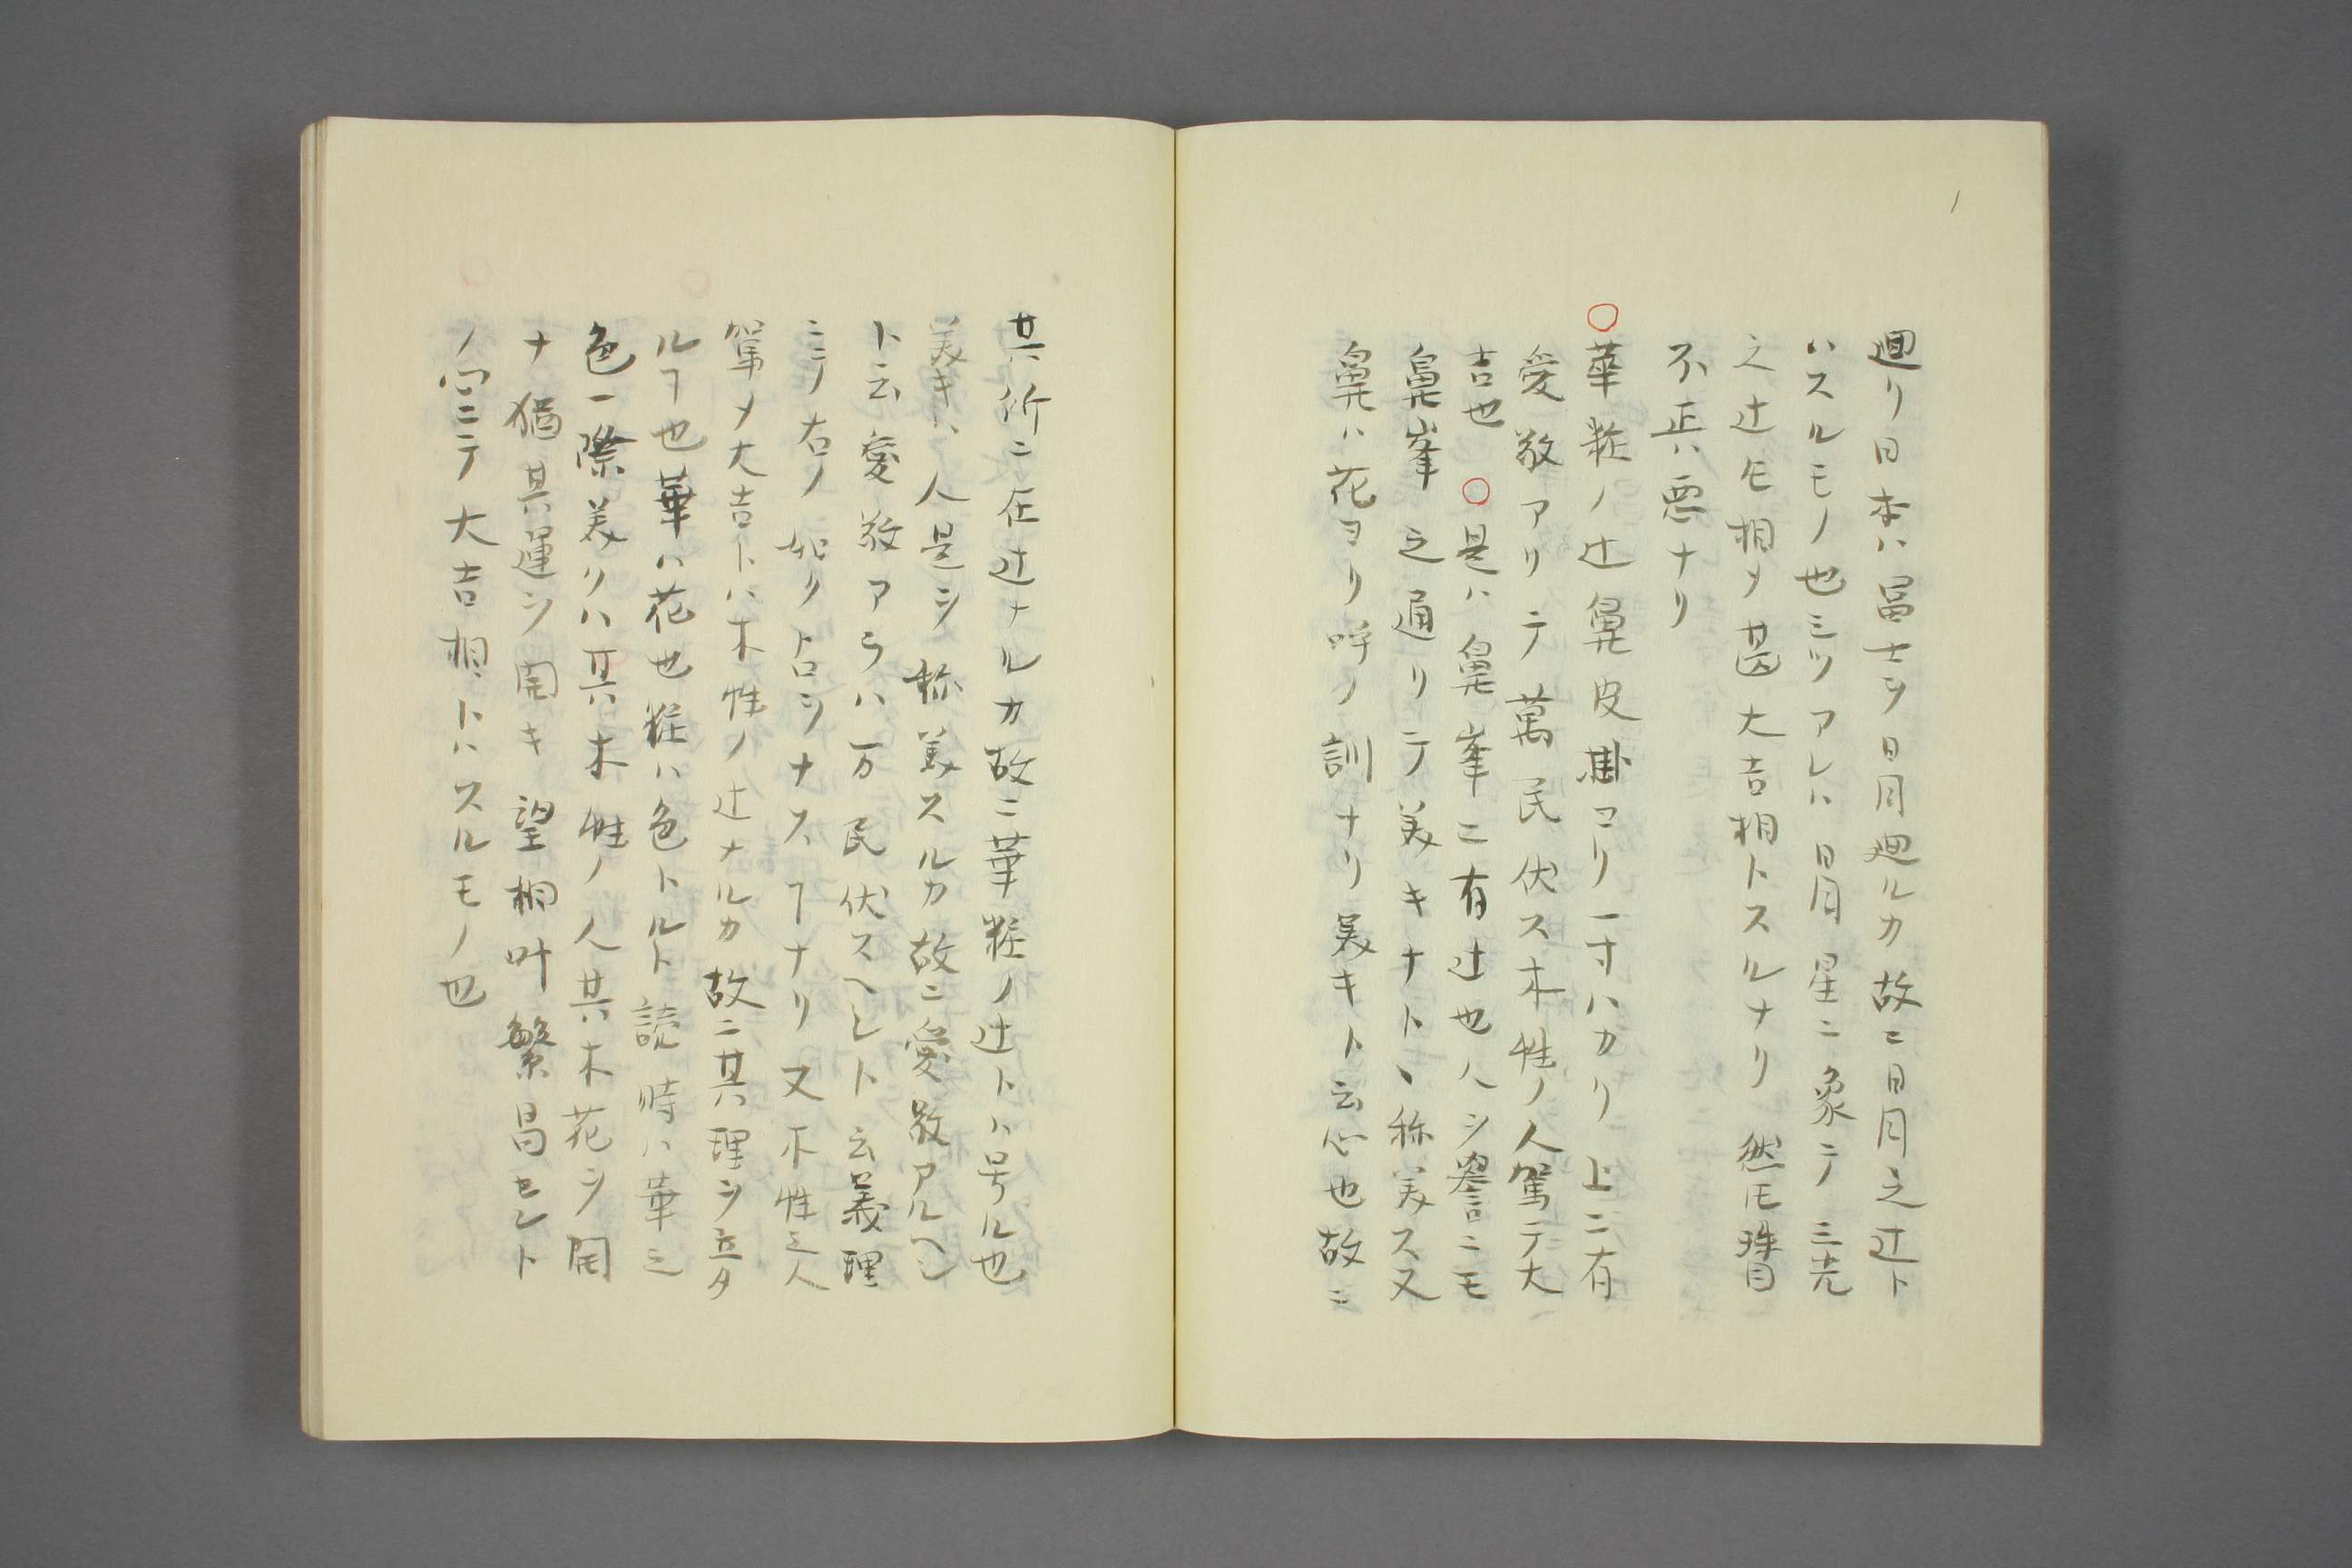 廻リ日本ハ冨士ヲ日月廻ルカ故ニ日月之辻ト
ハスルモノ也ミツアレハ日月星ニ象テ三光
之辻ト相〆甚大吉相トスルナリ然𪜈
不正ハ悪ナリ
○華粧ノ辻鼻皮掛ヨリ一寸ハカリ上ニ有
愛敬アリテ萬民伏ス木性ノ人駕テ大
吉也○是ハ鼻峯ニ有辻也人ヲ誉ニモ
鼻峯之通リテ美キナトヽ称美ス又
鼻ハ花ヨリ呼ノ訓ナリ美キト云心也故ニ
其所ニ在辻ナルカ故ニ華粧ノ辻トハ号ル也
美キハ人是ヲ称美スルカ故ニ愛敬アルヘシ
ト云愛敬アラハ万民伏スヘシト云義理
ニテ右ノ如ク占ヲナスヿナリ又木性之人
駕〆大吉トハ木性ノ辻ナルカ故ニ其理ヲ立タ
ルヿ也華ハ花也粧ハ色トルト読時ハ華之
色一際美リハ其木性ノ人其木花ヲ開
ナ猶其運ヲ開キ望相叶繁昌セント
ノ心ニテ大吉相トハスルモノ也